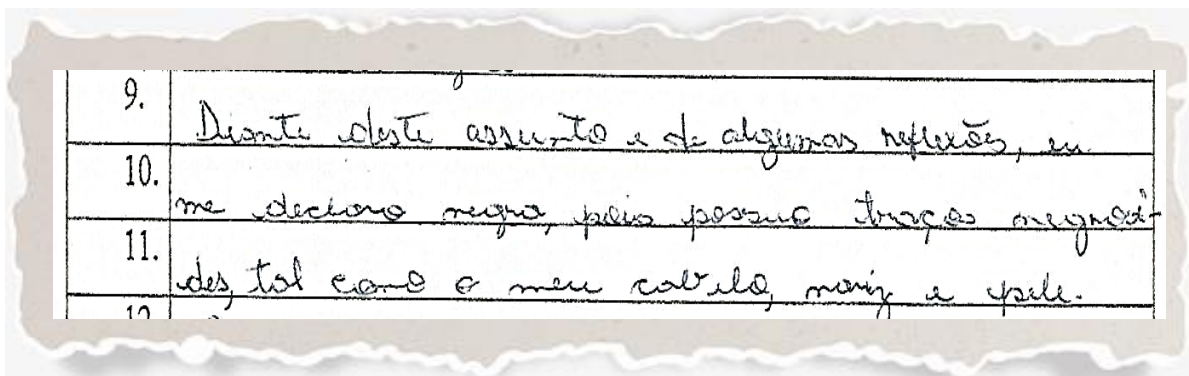 9. Diante deste assunto e de algumas reflexões, eu
10. me declaro negra, pois possuo traços negrói-
11. des, tal como o meu cabelo, nariz e pele.
12